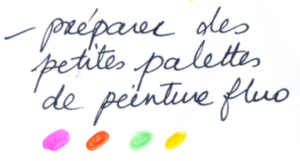 - préparer des
petites palettes
de peinture fluo